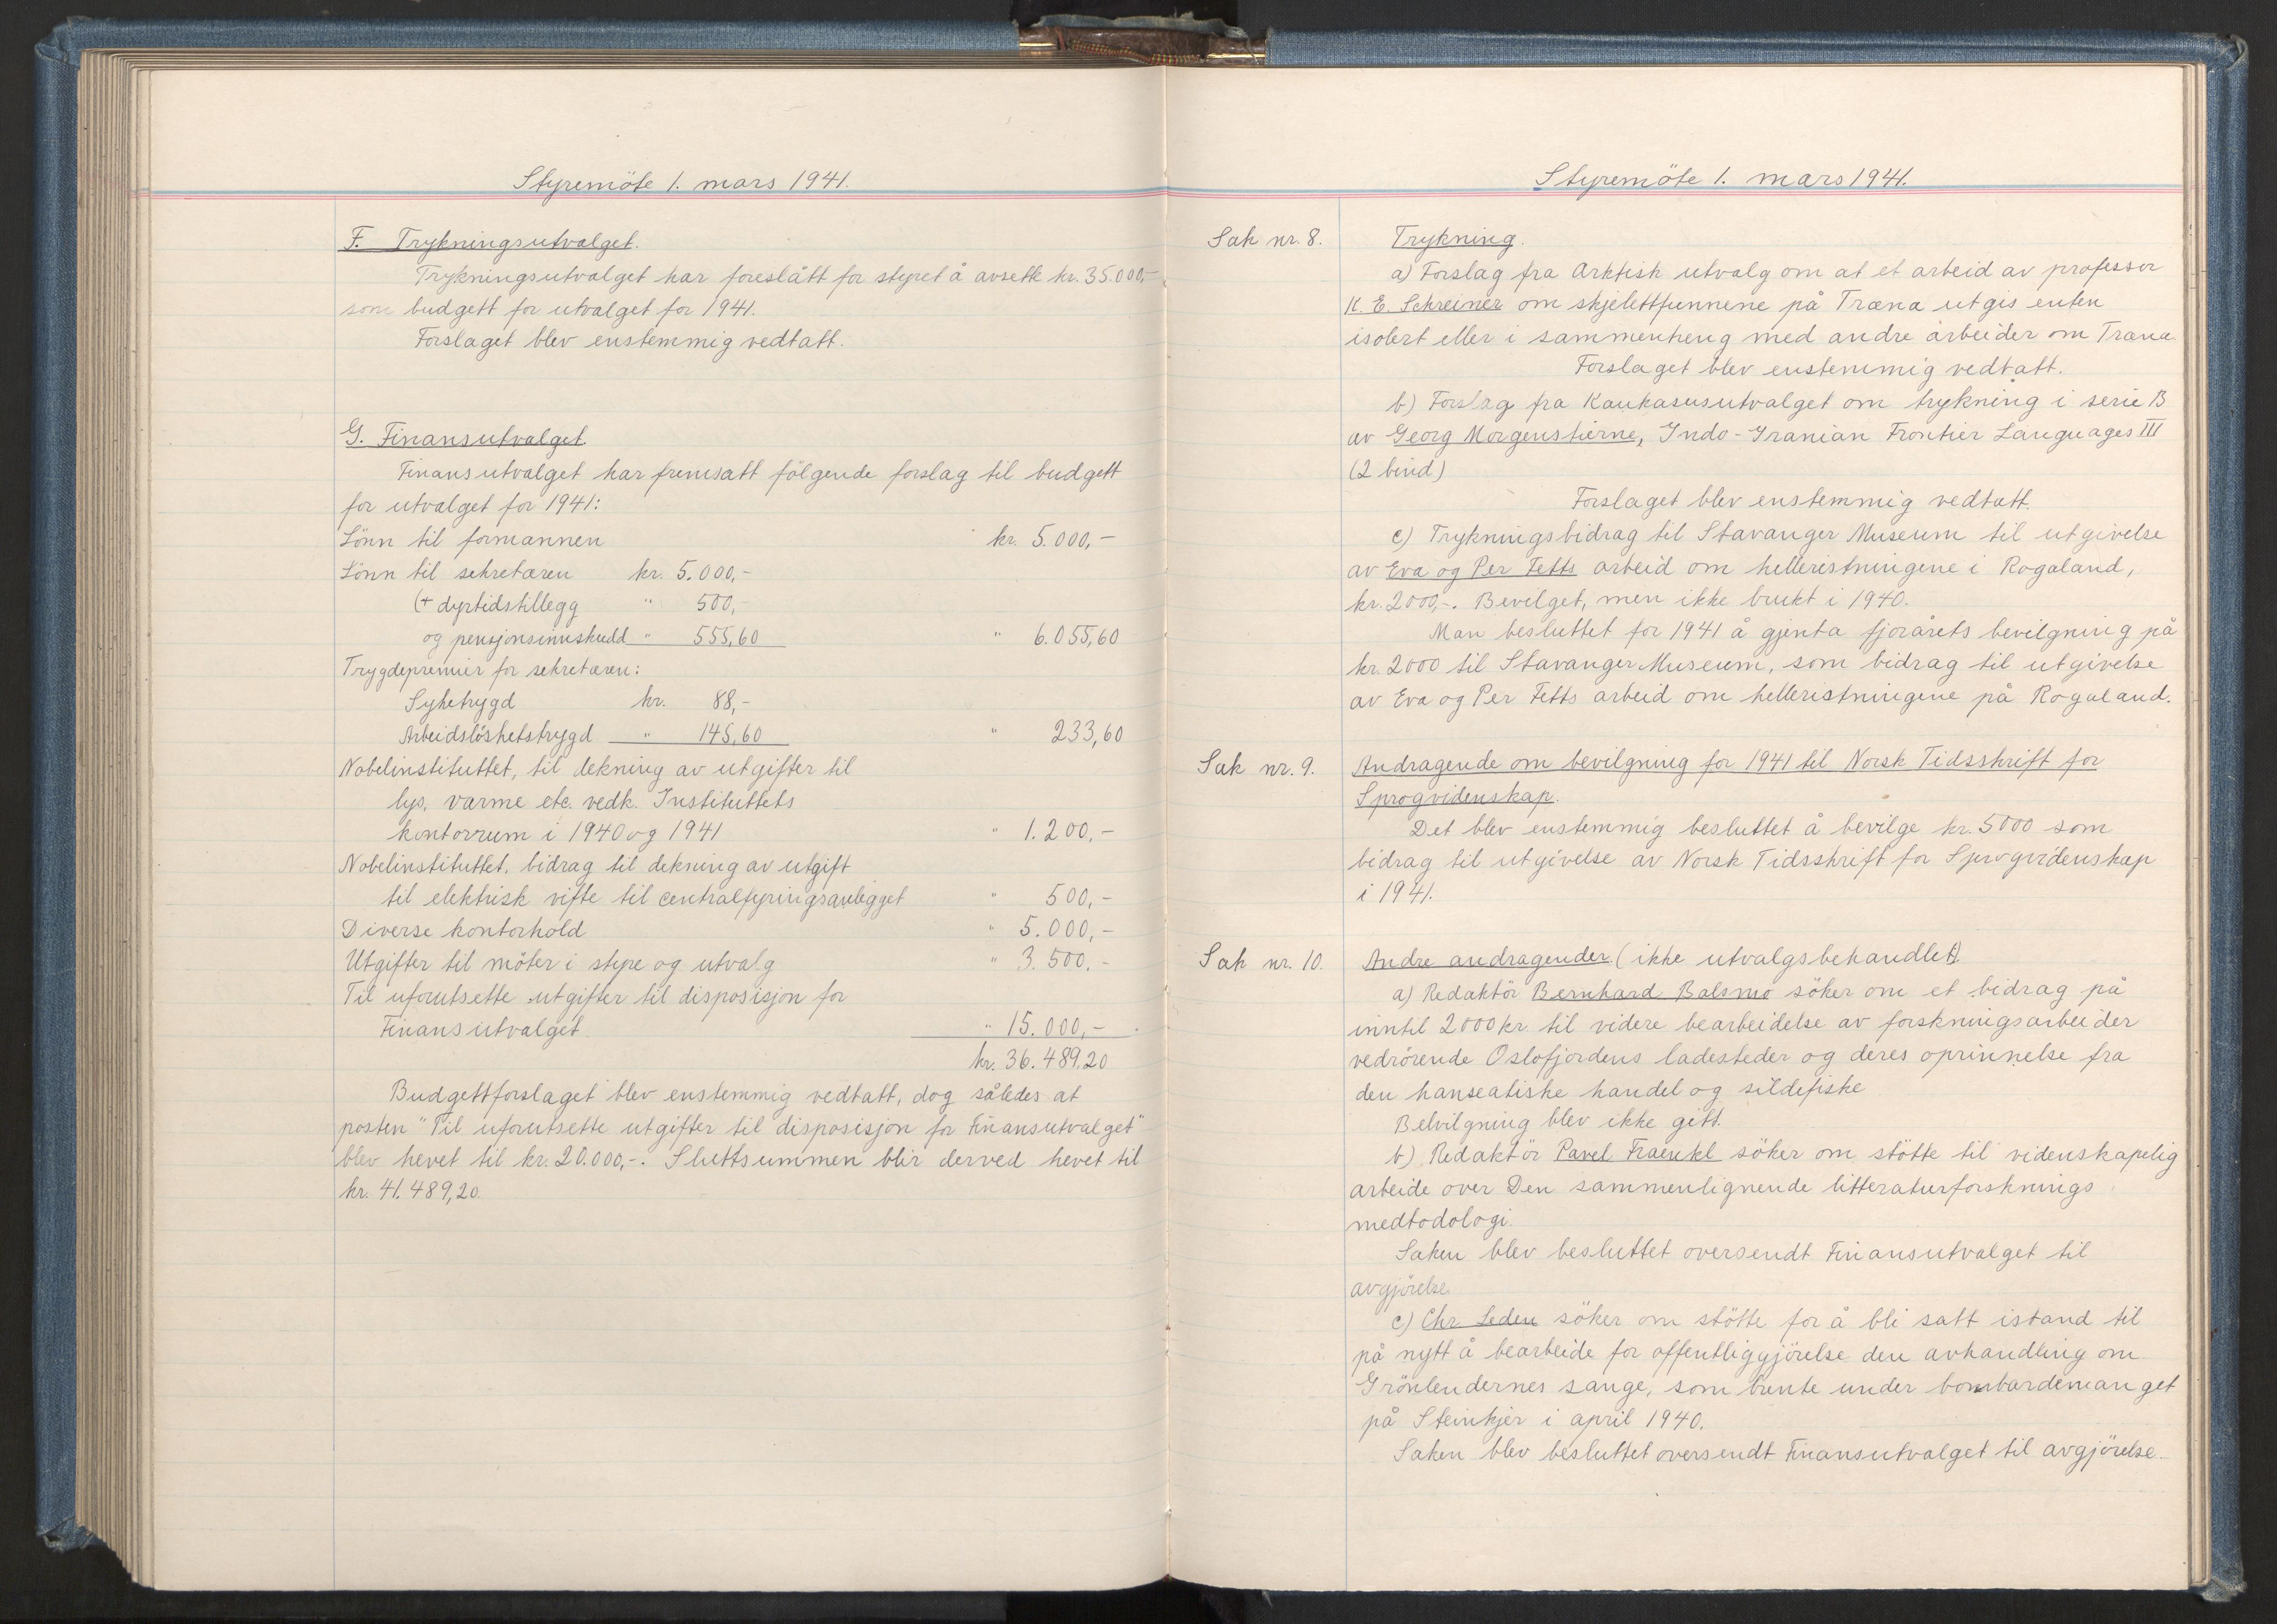 Styremöte 1. mars 1941.
F. Trykningsutvalget.
Trykningsutvalget har foreslått for styret å avsette kr. 35.000,-
som budgett for utvalget for 1941.
Forslaget blev enstemmig vedtatt.
G. Finansutvalget.
Finansutvalget har fremsatt fölgende forslag til budgett
for utvalget for 1941:
Lönn til formannen kr. 5.000,-
Lönn til sekretæren kr. 5.000,-
(+ dyrtidstillegg " 500,-
og pensjonsinnskudd " 555,60 " 6.055,60
Trygdepremier for sekretæren:
Syketrygd kr. 88,-
Arbeidslöshetstrygd " 145,60 " 233,60
Nobelinstituttet, til dekning av utgifter til
lys, varme etc. vedk. Instituttets
kontorrum i 1940 og 1941 " 1.200,-
Nobelinstituttet, bidrag til dekning av utgift
til elektrisk vifte til centralfyringsanlegget " 500,-
Diverse kontorhold " 5.000,-
Utgifter til möter i styre og utvalg " 3.500,-
Til uforutsette utgifter til disposisjon for
Finansutvalget " 15.000,-
kr. 36.489.20
Budgettforslaget blev enstemmig vedtatt, dog således at
posten "Til uforutsette utgifter til disposisjon for Finansutvalget"
blev hevet til kr. 20.000,-. Sluttsummen blir derved hevet til
kr. 41.489,20.
Styremöte 1. mars 1941.
Sak nr. 8. Trykning.
a) Forslag fra Arktisk utvalg om at et arbeid av professor
K. E. Schreiner om skjelettfunnene på Træna utgis enten
isolert eller i sammenheng med andre arbeider om Træna.
Forslaget blev enstemmig vedtatt.
b) Forslag fra Kaukasusutvalget om trykning i serie B
av Georg Morgenstierne, Indo-Iranian Frontier Languages III
(2 bind)
Forslaget blev enstemmig vedtatt.
c) Trykningsbidrag til Stavanger Museum til utgivelse
av Eva og Per Fetts arbeid om helleristningene i Rogaland,
kr. 2000,-. Bevilget, men ikke brukt i 1940.
Man besluttet for 1941 å gjenta fjorårets bevilgning på
kr. 2000 til Stavanger Museum, som bidrag til utgivelse
av Eva og Per Fetts arbeid om helleristningene på Rogaland.
Sak nr. 9. Andragende om bevilgning for 1941 til Norsk Tidsskrift for
Sprogvidenskap.
Det blev enstemmig besluttet å bevilge kr. 5000 som
bidrag til utgivelse av Norsk Tidsskrift for Sprogvidenskap
i 1941.
Sak nr. 10. Andre andragender (ikke utvalgsbehandlet).
a) Redaktör Bernhard Balsmo söker om et bidrag på
inntil 2000 kr. til videre bearbeidelse av forskningsarbeider
vedrörende Oslofjordens ladesteder og deres oprinnelse fra
den hanseatiske handel og sildefiske
Belvilgning blev ikke gitt.
b) Redaktör Pavel Fraenkl söker om stötte til videnskapelig
arbeide over Den sammenlignende litteraturforsknings
medtodologi.
Saken blev besluttet oversendt Finansutvalget til
avgjörelse.
c) Chr. Leden söker om stötte for å bli satt istand til
på nytt å bearbeide for offentliggjörelse den avhandling om
Grönlendernes sange, som brente under bombardemanget
på Steinkjer i april 1940.
Saken blev besluttet oversendt Finansutvalget til avgjörelse.